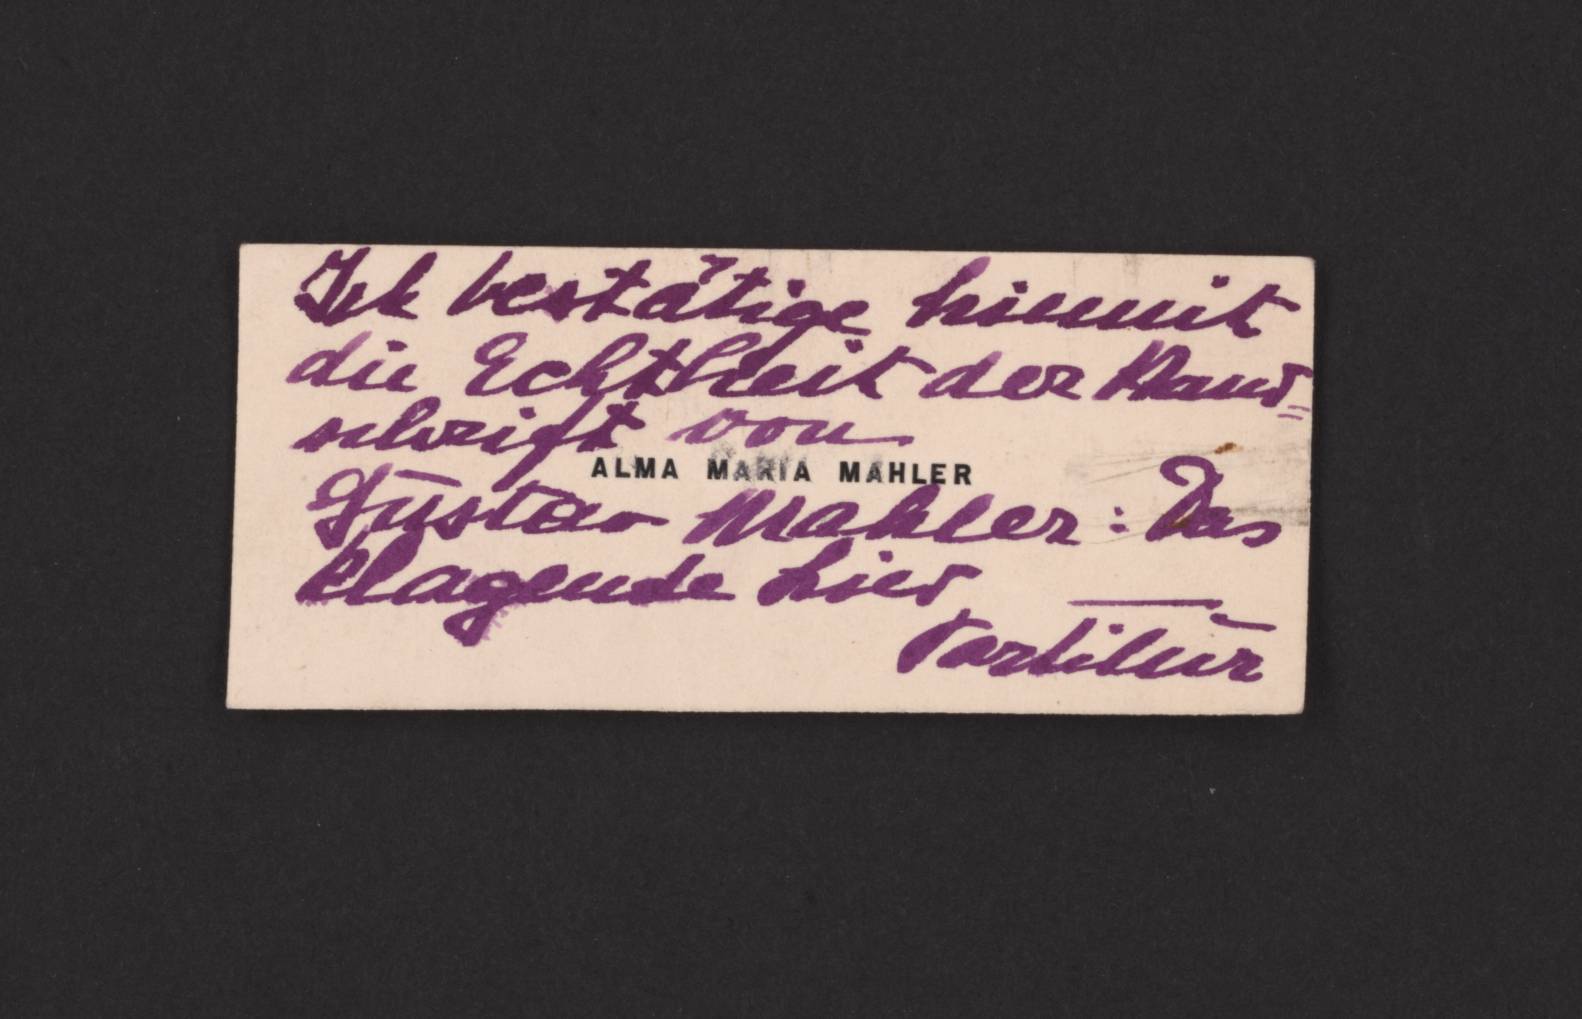 Ich bestätige hiemit
die Echtheit der Hand=
schrift von
ALMA MARIA MAHLER
Gustav Mahler: Das
klagende Lied —
Partitur